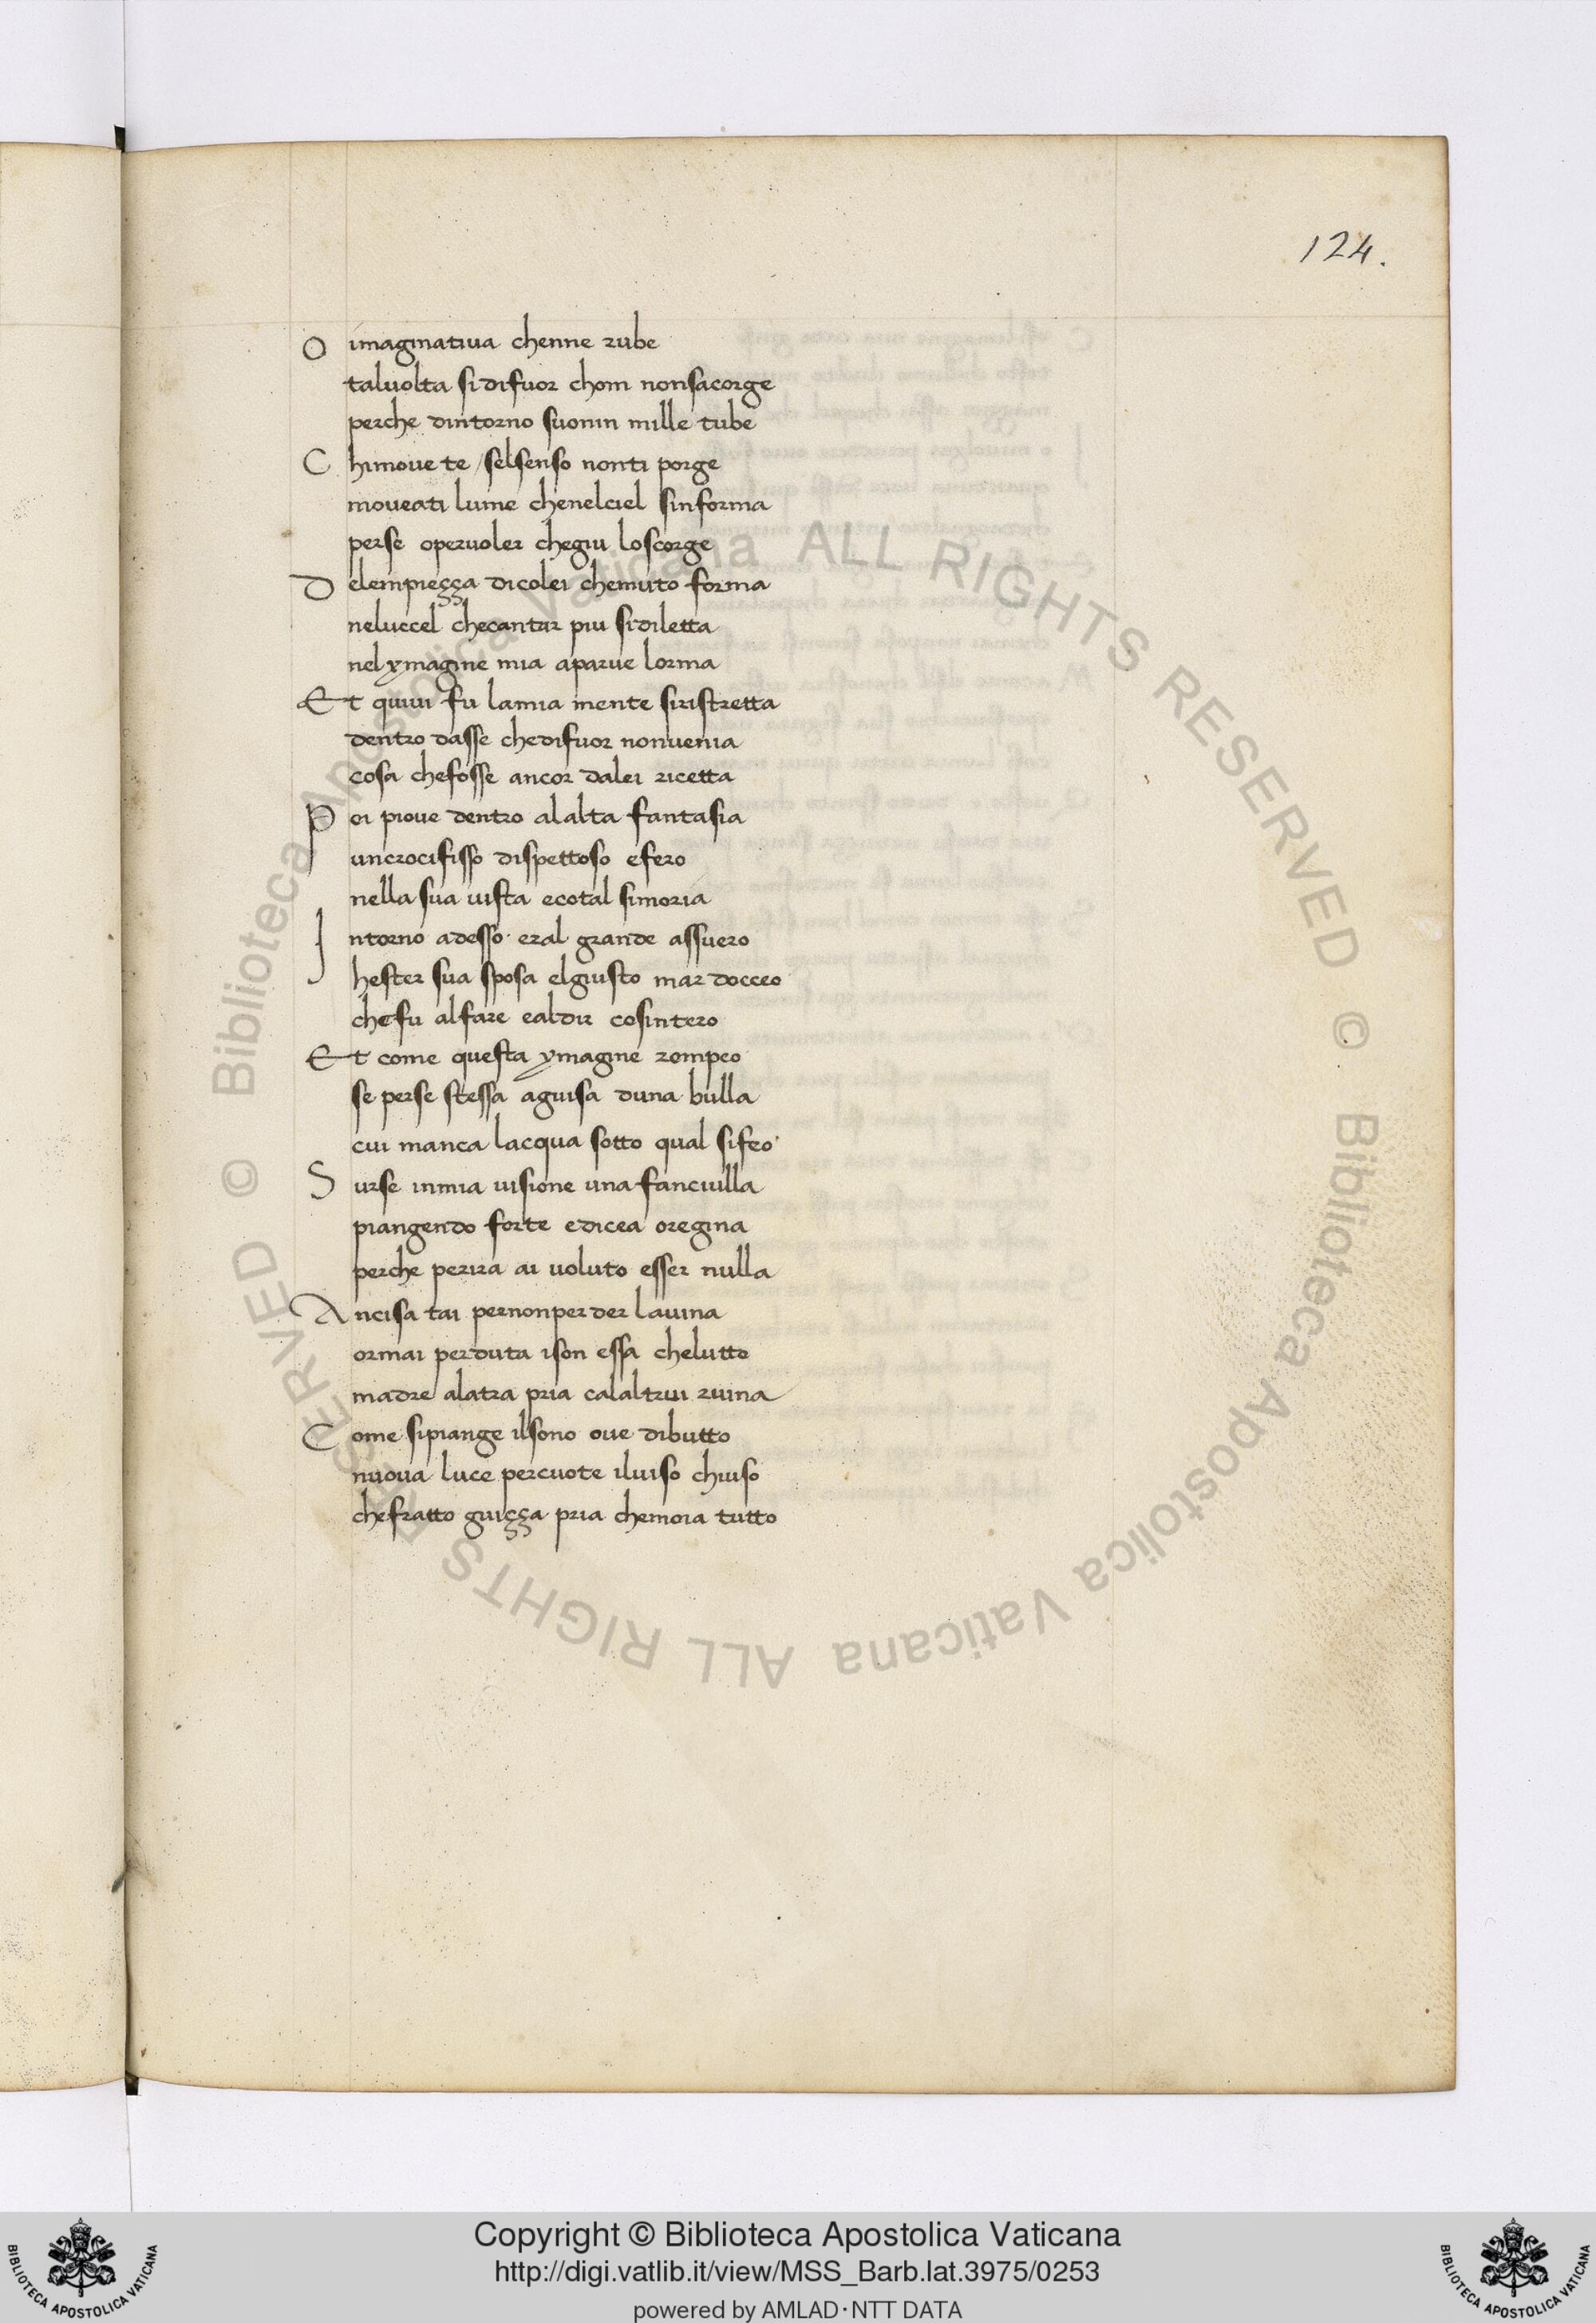 124.
O imaginatiua chenne rube
taluolta si difuor chom nonsacorge
perche dintorno suonin mille tube
C himoue te / selsenso nonti porge
moueati lume chenelciel sinforma
perse operuoler chegiu loscorge
D elempiezza dicolei chemuto forma
neluccel checantar piu sidiletta
nel ymagine mia aparue lorma
Et quiui fu lamia mente siristretta
dentro dasse chedifuor nonuenia
cosa chefosse ancor dalei ricetta
P oi pioue dentro alalta fantasia
uncrocifisso dispettoso efero
nella sua uista ecotal simoria
I ntorno adesso eral grande assuero
hester sua sposa elgiusto mardocceo
chefu alfare ealdir cosintero
Et come questa ymagine rompeo
se perse stessa aguisa duna bulla
cui manca lacqua sotto qual sifeo
S urse inmia uisione una fanciulla
piangendo forte edicea oregina
perche perira ai uoluto esser nulla
A ncisa tai pernonperder lauina
ormai perduta ison essa chelutto
madre alatra pria calaltrui ruina
C ome sipiange ilsono oue dibutto
nuoua luce percuote iluiso chiuso
chefratto guizza pria chemoia tutto
© Biblioteca Apostolica Vaticana ALL RIGHTS RESERVED © Biblioteca Apostolica Vaticana ALL RIGHTS RESERVED
BIBLIOTECA APOSTOLICA VATICANA
Copyright © Biblioteca Apostolica Vaticana
http://digi.vatlib.it/view/MSS_Barb.lat.3975/0253
powered by AMLAD·NTT DATA
BIBLIOTECA APOSTOLICA VATICANA